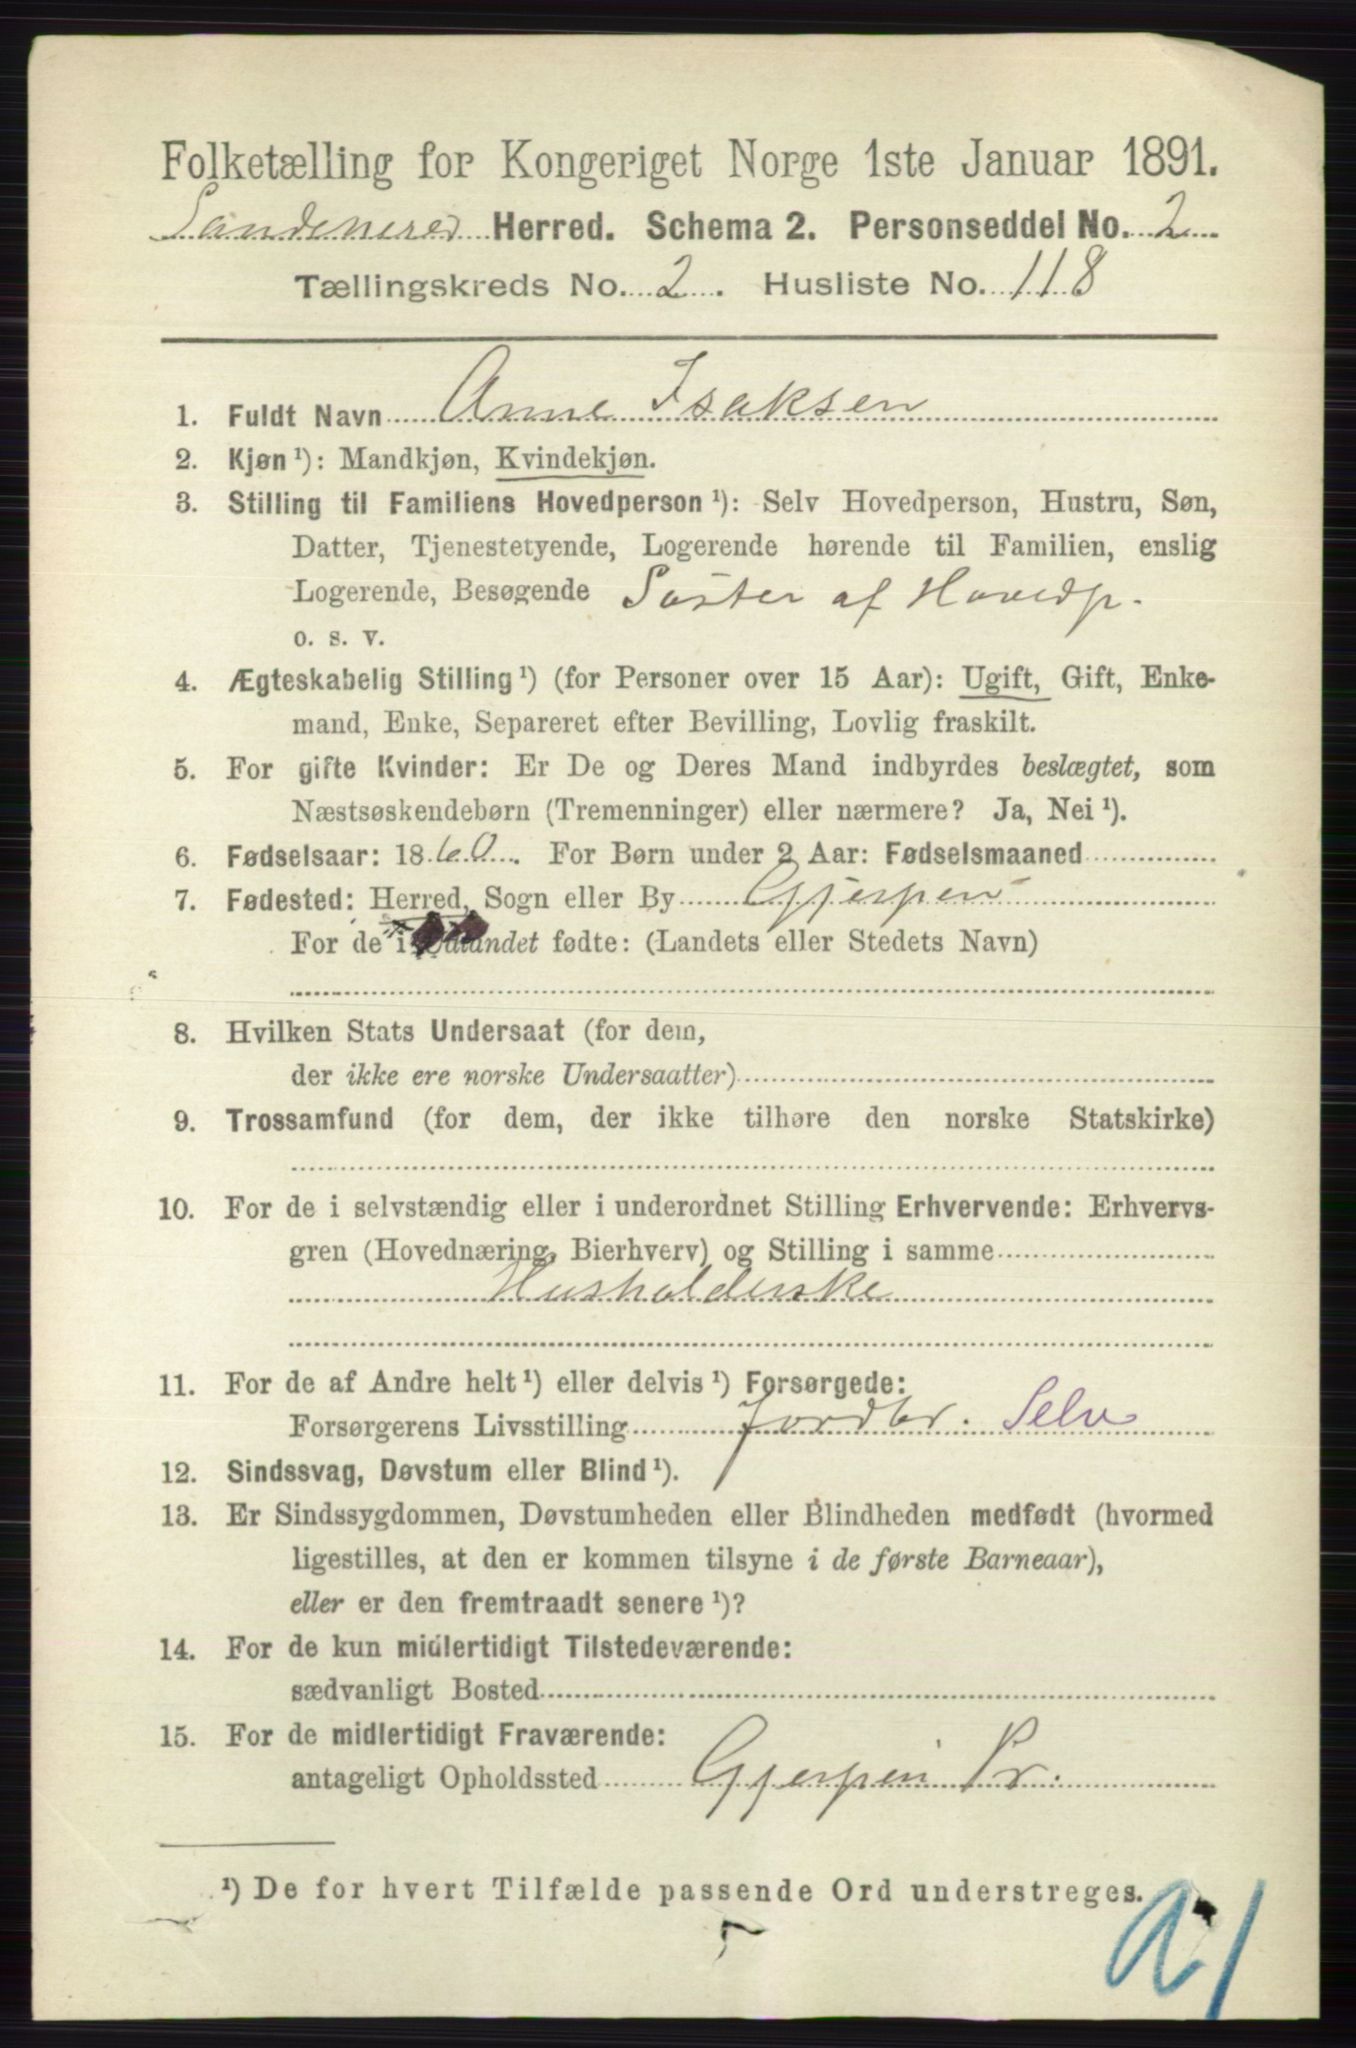 Folketælling for Kongeriget Norge 1ste Januar 1891.
Sandeherred Herred. Schema 2. Personseddel No. 2
Tællingskreds No. 2. Husliste No. 118
1. Fuldt Navn Anne Isaksen
2. Kjøn ¹): Mandkjøn, Kvindekjøn.
3. Stilling til Familiens Hovedperson ¹): Selv Hovedperson, Hustru, Søn,
Datter, Tjenestetyende, Logerende hørende til Familien, enslig
Logerende, Besøgende Søster af Hovedp.
o. s. v.
4. Ægteskabelig Stilling ¹) (for Personer over 15 Aar): Ugift, Gift, Enke-
mand, Enke, Separeret efter Bevilling, Lovlig fraskilt.
5. For gifte Kvinder: Er De og Deres Mand indbyrdes beslægtet, som
Næstsøskendebørn (Tremenninger) eller nærmere? Ja, Nei ¹).
6. Fødselsaar: 1860. For Børn under 2 Aar: Fødselsmaaned
7. Fødested: Herred, Sogn eller By Gjerpen
For de i Udlandet fødte: (Landets eller Stedets Navn)
8. Hvilken Stats Undersaat (for dem,
der ikke ere norske Undersaatter)
9. Trossamfund (for dem, der ikke tilhøre den norske Statskirke)
10. For de i selvstændig eller i underordnet Stilling Erhvervende: Erhvervs-
gren (Hovednæring, Bierhverv) og Stilling i samme
Husholderske
11. For de af Andre helt ¹) eller delvis ¹) Forsørgede:
Forsørgerens Livsstilling Jordbr. Selv
12. Sindssvag, Døvstum eller Blind ¹).
13. Er Sindssygdommen, Døvstumheden eller Blindheden medfødt (hvormed
ligestilles, at den er kommen tilsyne i de første Barneaar),
eller er den fremtraadt senere ¹)?
14. For de kun midlertidigt Tilstedeværende:
sædvanligt Bosted
15. For de midlertidigt Fraværende:
antageligt Opholdssted Gjerpen Pr.
¹) De for hvert Tilfælde passende Ord understreges.